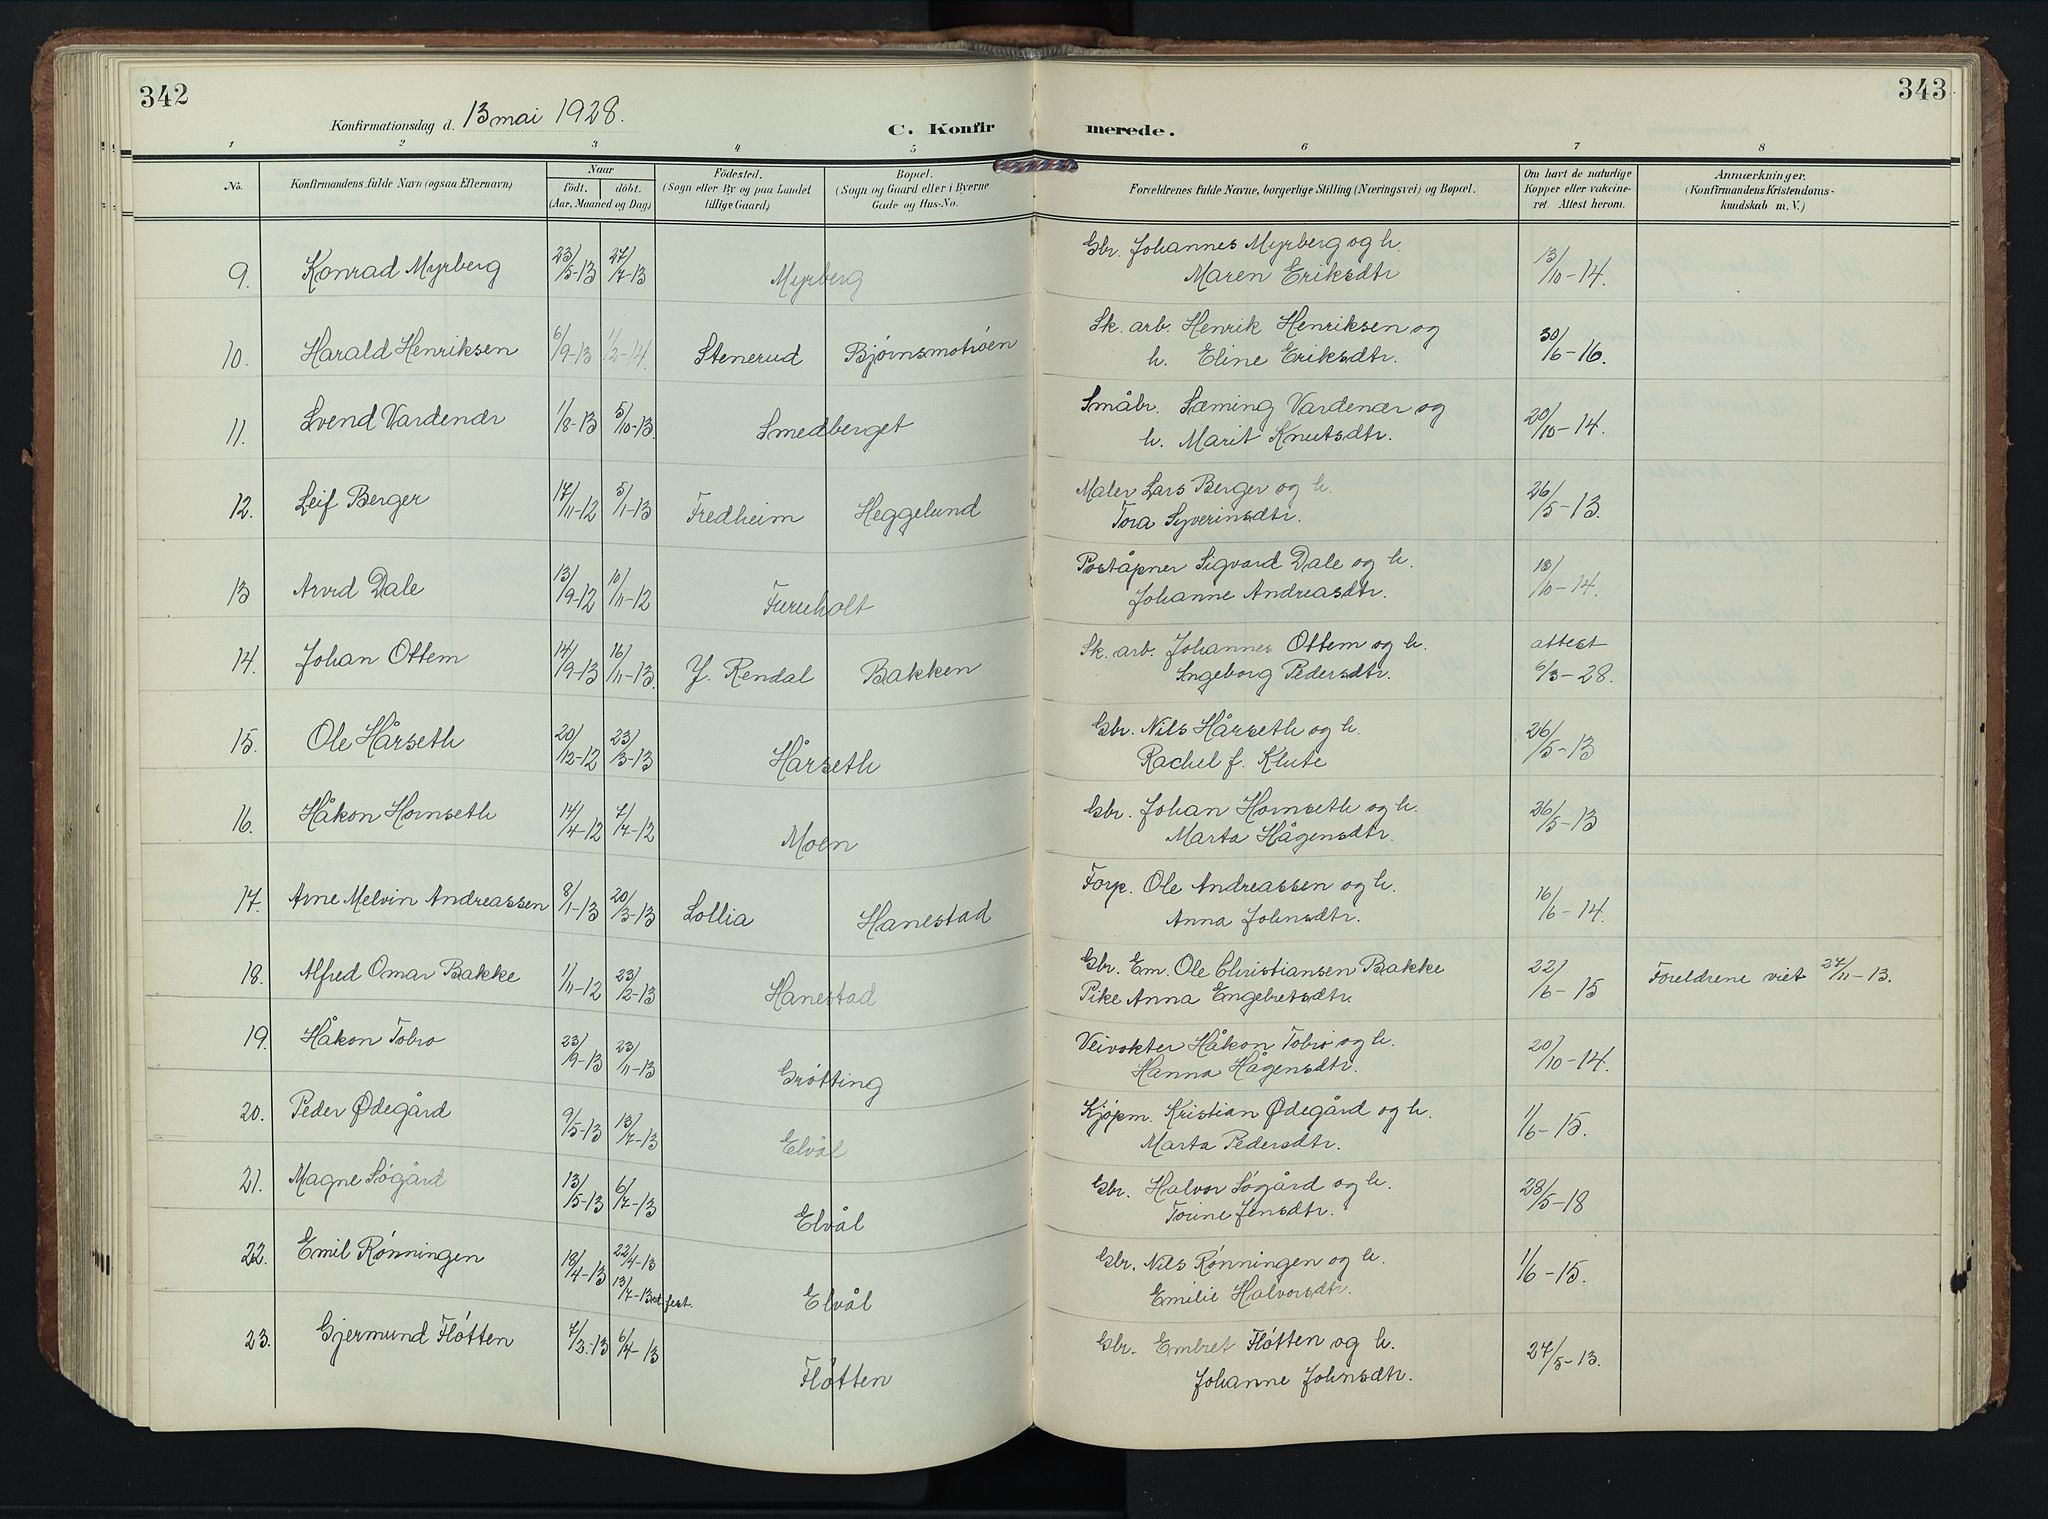 342
343
Konfirmationsdag d. 13 mai 1928.
C. Konfirmerede.
1 2 3 4 5 6 7 8
No.
Konfirmandens fulde Navn (ogsaa Efternavn)
Naar
født. døbt.
(Aar, Maaned og Dag)
Fødested.
(Sogn eller By og paa Landet
tillige Gaard)
Bopæl.
(Sogn og Gaard eller i Byerne
Gade og Hus-No.
Forældrenes fulde Navne, borgerlige Stilling (Næringsvei) og Bopæl.
Om havt de naturlige
Kopper eller vakcine-
ret. Attest herom.
Anmærkninger.
(Konfirmandens Kristendoms-
kundskab m. V.)
9. Konrad Myrberg 23/5-13 27/7-13 Myrberg Gbr. Johannes Myrberg og h. 13/10-14.
Maren Eriksdtr
10. Harald Henriksen 6/9-13 1/2-14. Stenerud Bjørnsmotrøen Sk. arb. Henrik Henriksen og 30/6-16.
h. Eline Eriksdtr.
11. Svend Vardenær 1/8-13 5/10-13. Smedberget Småbr. Sæming Vardenær og 20/10-14.
h. Marit Knutsdtr.
12. Leif Berger 17/11-12 5/1-13 Fredheim Heggelund Maler Lars Berger og h. 26/5-13.
Tora Syverinsdtr.
13 Arvid Dale 13/9-12 10/11-12 Furuholt Poståpner Sigvard Dale og h. 13/10-14.
Johanne Andreasdtr.
14. Johan Ottem 14/9-13 16/11-13. Y. Rendal Bakken Sk. arb. Johannes Ottem og h. attest
Ingeborg Pedersdtr. 6/3-28.
15. Ole Hårseth 20/12-12 23/3-13 Hårseth Gbr. Nils Hårseth og h. 26/5-13
Rachel f. Klute
16. Håkon Hornseth 14/4-12 7/7-12 Moen Gbr. Johan Hornseth og h. 26/5-13
Marta Hågensdtr.
17. Arne Melvin Andreassen 8/1-13 20/3-13 Sollia Hanestad Forp. Ole Andreassen og h. 16/6-14.
Anna Johnsdtr.
18. Alfred Omar Bakke 1/11-12 23/2-13 Hanestad Gbr. Em. Ole Christiansen Bakke 22/6-15 Foreldrene viet 27/11-13.
Pike Anna Engebretsdtr.
19. Håkon Tobro 23/9-13 23/11-13 Grøtting Veivokter Håkon Tobro og h. 20/10-14.
Hanna Hågensdtr.
20. Peder Ødegård 9/5-13 13/7-13 Elvål Kjøpm. Kristian Ødegård og h. 1/6-15.
Marta Pedersdtr.
21. Magne Søgård 13/5-13 6/7-13 Elvål Gbr. Halvor Søgård og h. 28/5-18
Torine Jensdtr.
22. Emil Rønningen 18/4-13 22/4-13 Elvål Gbr. Nils Rønningen og h. 1/6-15.
13/7-13 st.fest. Emilie Halvorsdtr.
23. Gjermund Fløtten 7/2-13 6/4-13 Fløtten Gbr. Embret Fløtten og h. 27/5-13.
Johanne Johnsdtr.